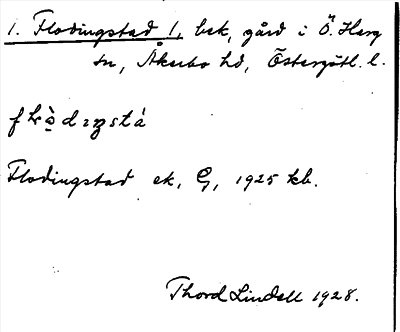 1. Flodingstad 1, bek, gård i Ö. Harg
sn, Åkerbo hd, Östergötl. l.
Flodingstad ek, G, 1925 kb.
Thord Lindell 1928.